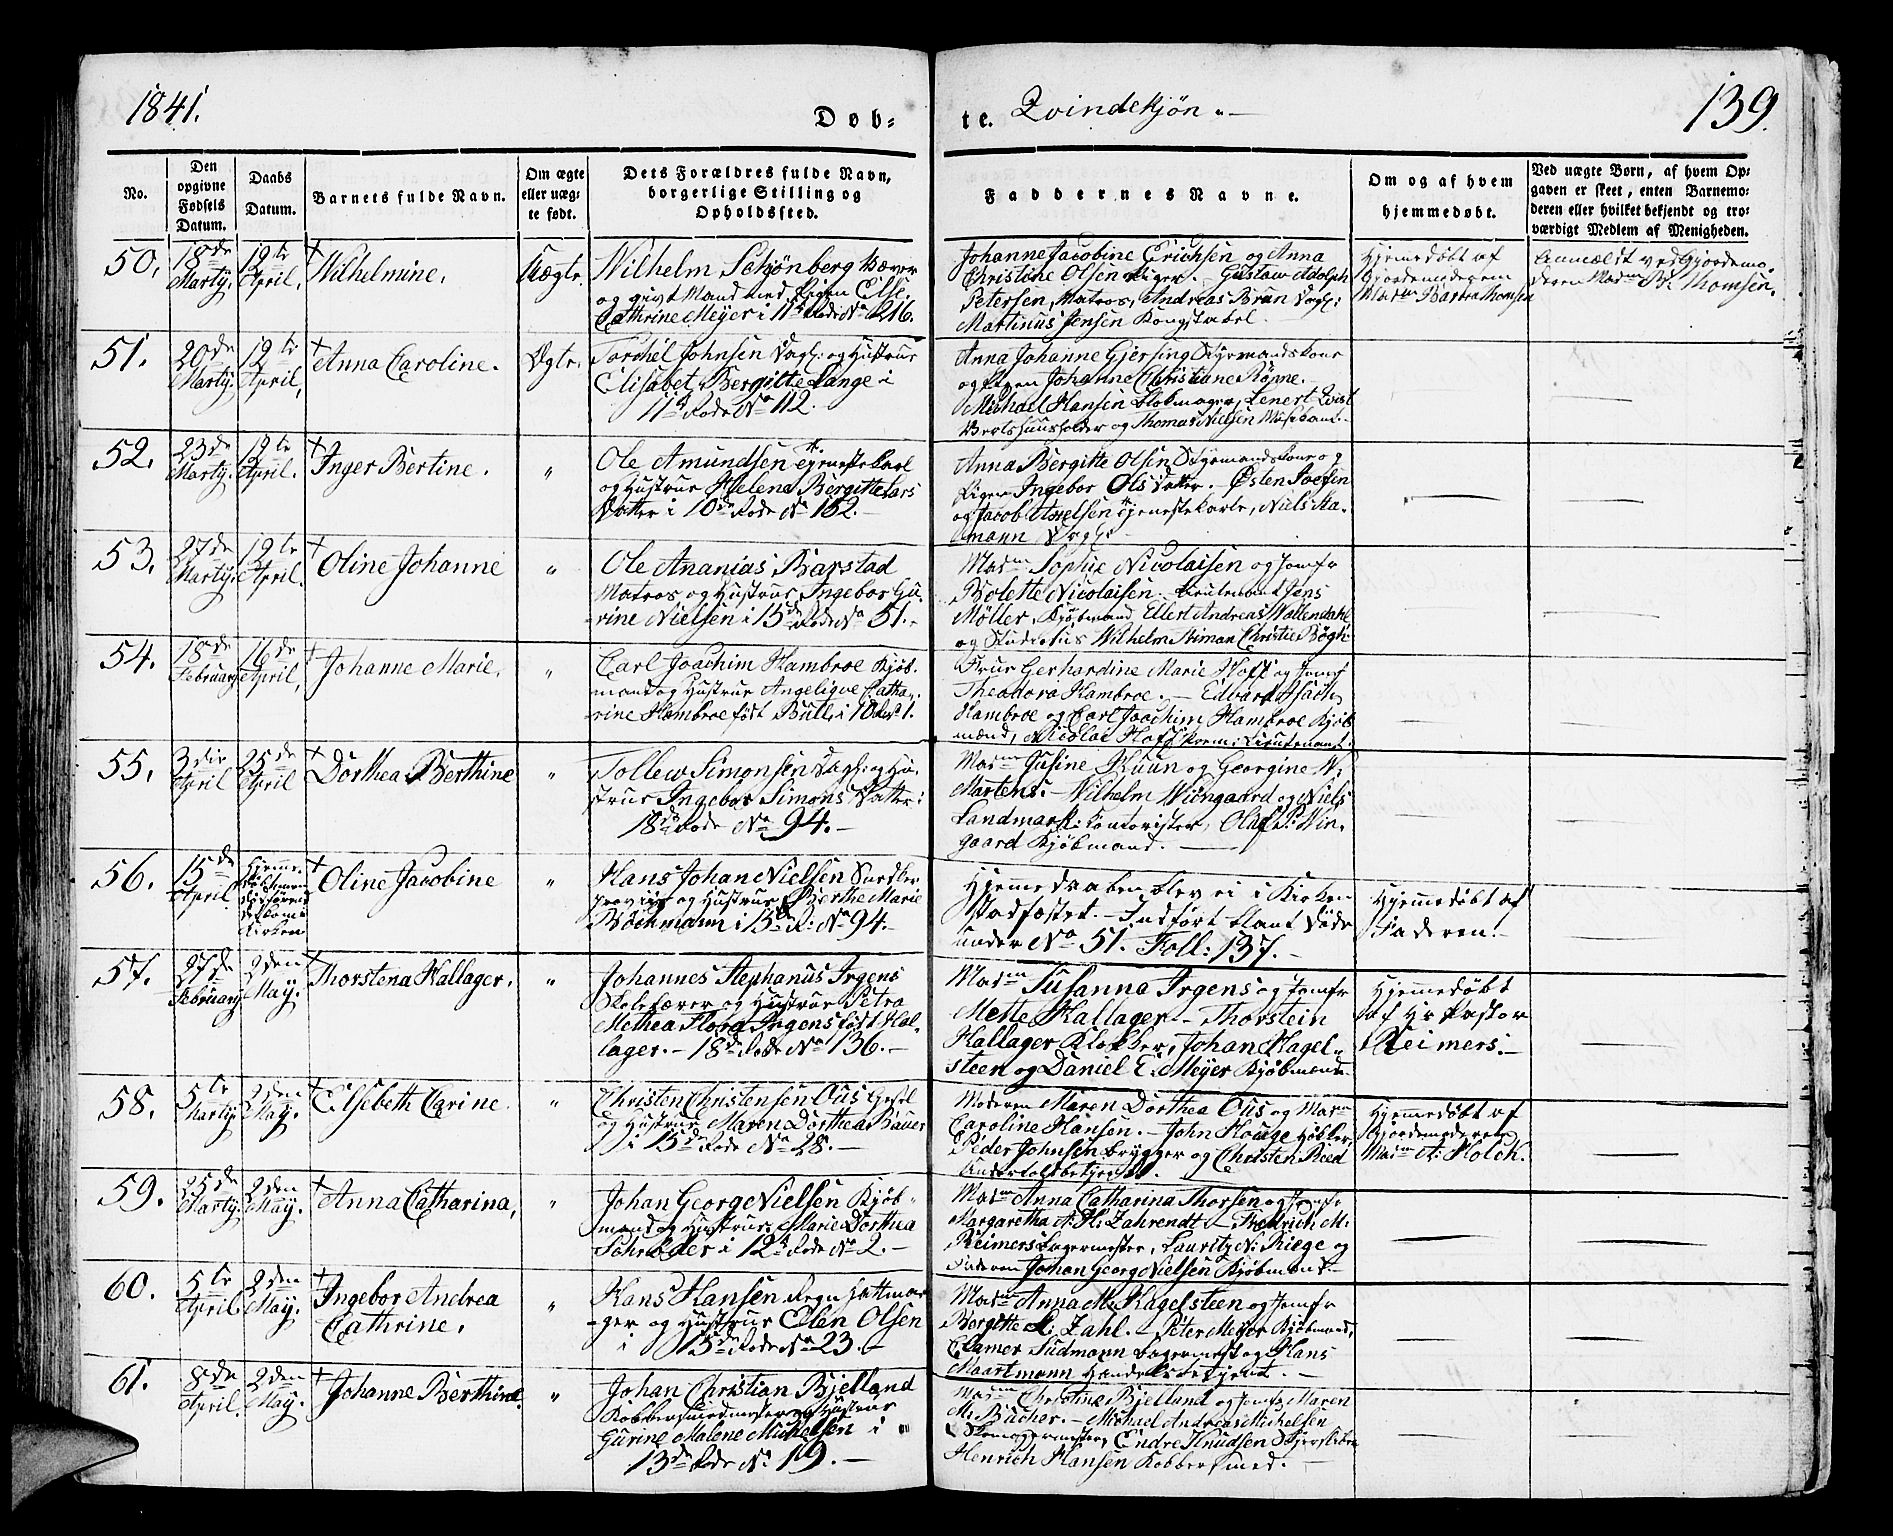 1841.
Døb-
te. Qvindekjøn.
139.
No.
Den opgivne Fødsels Datum.
Daabs Datum.
Barnets fulde Navn.
Om ægte eller uæg-te født.
Dets Forældres fulde Navn, borgerlige Stilling og Opholdssted.
Faddernes Navne.
Om og af hvem hjemmedøbt.
Ved uægte Børn, af hvem Op-
gaven er skeet, enten Barnemo-
deren eller hvilket bekjendt og tro-
værdigt Medlem af Menigheden.
50. 18de Marty. 12te April. Wilhelmine. Uægte.
Wilhelm Schjönberg Væver
og givt Mand med Pigen Else
Cathrine Meyer i 11te Rode No 216.
Johanne Jacobine Erichsen og Anna
Christine Olsen Piger. Gustav Adolph
Petersen Matros, Andreas Brun Dagl:
Martinus Jensen Kongstabel.
Hjemmedøbt af
Gjordemoderen
Madm Barbra Thomsen
Anmeldt ved Gjordemo-
deren Madm B. Thomsen.
51. 20de Marty. 12te April. Anna Caroline. Ægte.
Torchel Johnsen Dagl: og Hustrue
Elisabet Bergitte Lange i
11te Rode No 112.
Anna Johanne Gjersing Styrmandskone
og Pigen Johanne Christiane Röpne.
Michael Hansen Blokmager, Lenert Qvist
Vertshuusholder og Thomas Nielsen Musikant.
52. 23de Marty. 12te April. Inger Bertine. "
Ole Amundsen Tjenestekarl
og Hustrue Helene Bergitte Lars
Datter i 10de Rode No 152.
Anna Bergitte Olsen Styrmandskone og
Pigen Ingebor Ols Datter. Østen Josefsen
og Jacob Axelsen Tjenestekarle, Niels Aa-
mann Dagl:
53. 27de Marty. 12te April. Oline Johanne "
Ole Ananias Barstad
Matros og Hustrue Ingebor Gu-
rine Nielsen i 15de Rode No 51.
Madm Sophie Nicolaisen og Jomfr
Bolette Nicolaisen. Lieutenant Jens
Møller, Kjøbmand Ellert Andreas Wallendahl
og Studiosus Wilhelm Riman Christie Bøgh
54. 18de Februar. 16de April. Johanne Marie. "
Carl Joachim Hambroe Kjøb-
mand og Hustrue Angelique Catha-
rine Hambroe født Bull i 10 Rode 1.
Frue Gerhardine Marie Hoff og Jomf
Theodora Hambroe. Edvard Isach
Hambroe og Carl Joachim Hambroe Kjøb
mænd, Nicolai Hoff Prem: Lieutenant.
55. 3die April 25de April Dorthea Berthine "
Tollew Simonsen Dagl: og Hu-
strue Ingebor Simons Datter i
18de Rode No 94.
Madm Jusine Kuun og Georgine W.
Martens. Wilhelm Wiingaard og Niels
Landmark Contorister, Olaf P: Win-
gaard Kjøbmand.
56. 15de April Oline Jacobine "
Hans Johan Nielsen
og Hustrue Berthe Marie
Bochmann i 15de R: No 94.
Hjemmedaaben blev ei i Kirken
Stadfæstet. Indført blant Døde
under No 51. Foll: 137.
Hjemmedøbt af
Faderen.
57. 27de Februar. 2den May. Thorstena Hallager. "
Johannes Stephanus Irgens
Skolelærer og Hustrue Petra
Methea Flora Irgens født Hal-
lager. 18de Rode No 136.
Madm Susanna Irgens og Jomfr
Mette Hallager. Thorstein
Hallager Klokker, Johan Hagel-
steen og Daniel E. Meyer Kjøbmænd.
Hjemmedøbt
af Hr Pastor
Reimers.
58. 5te Marty 2den May. Elsebeth Carine. "
Christen Christensen Ous Gesel
og Hustrue Maren Dorthea Bauer
i 15de Rode No 28.
Moderen Maren Dorthea Ous og Madm
Caroline Hansen. John Houge Høkker,
Peder Johnsen Brygger og Christen Reed
Undertoldbetjent.
Hjemmedøbt af
Gjordemoderen
Madm A: Holck.
59. 25de Marty. 2den May. Anna Catharina. "
Johan Georg Nielsen Kjøb-
mand og Hustrue Marie Dorthea
Schrøder i 12te Rode No 2.
Madm Anna Catharina Thorsen og Jomfr
Margaretha A. H: Zahrendt. Fredrich M.
Reimers Bagermester, Lauritz N: Riege og
Faderen Johan Georg Nielsen Kjøbmand.
60. 5te April. 2den May. Ingebor Andrea Cathrine. "
Hans Hansen Regnhatmar-
ger og Hustrue Elen Olsen
i 15de Rode No 23.
Madm Anna M: Hagelsteen og Jomfr
Bergitte L: Zahl. Peter Meyer Kjøbmand,
Clamer Sudmann Bagermest og Hans
Maartmann Handelsbetjent.
61. 8de April. 2den May. Johanne Berthine. "
Johan Christian Bjelland
Kobbersmedmester og Hustrue
Gurine Malene Michelsen i
13de Rode No 19.
Madm Christina Bjelland og Jomfr Maren
M: Bücher. Michael Andreas Michelsen
Skomagermester, Endre Knudsen
Henrich Hansen Kobbersmed.